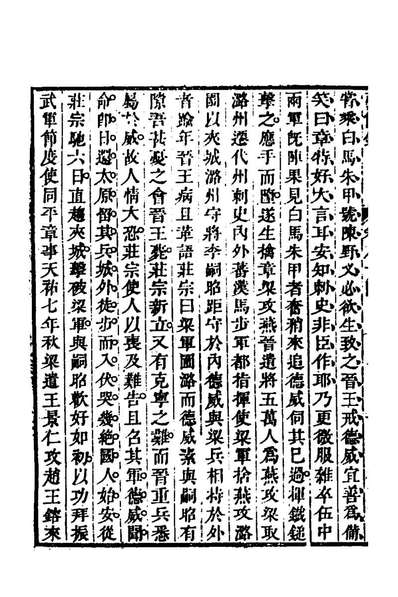 常乘白馬朱甲號陳野义必欲生致之晉王戒德威宜善爲備
笑曰章特好大言耳安知刺史非臣作耶乃更微服雜卒伍中
兩軍旣陣果見白馬朱甲者奮矟來追德威伺其已過揮鐵鎚
擊之應手而墮遂生擒章梁攻燕晉遣將五萬人爲燕攻梁取
潞州遷代州刺史內外蕃漢馬步軍都指揮使梁軍捨燕攻潞
圍以夾城潞州守將李嗣昭距守於內德威與梁兵相持於外
者踰年晉王病且革語莊宗曰梁軍圍潞而德威素與嗣昭有
隙吾甚憂之會晉王薨莊宗新立又有克寧之難而晉重兵悉
屬於威故人情大恐莊宗使人以喪及難告且召其軍德威聞
命卽日還太原畱其兵城外徒步而入伏哭幾絶國人始安從
莊宗馳六日直趨夾城擊破梁軍與嗣昭歡好如初以功拜振
武軍節度使同平章事天祐七年秋梁遣王景仁攻趙王鎔來